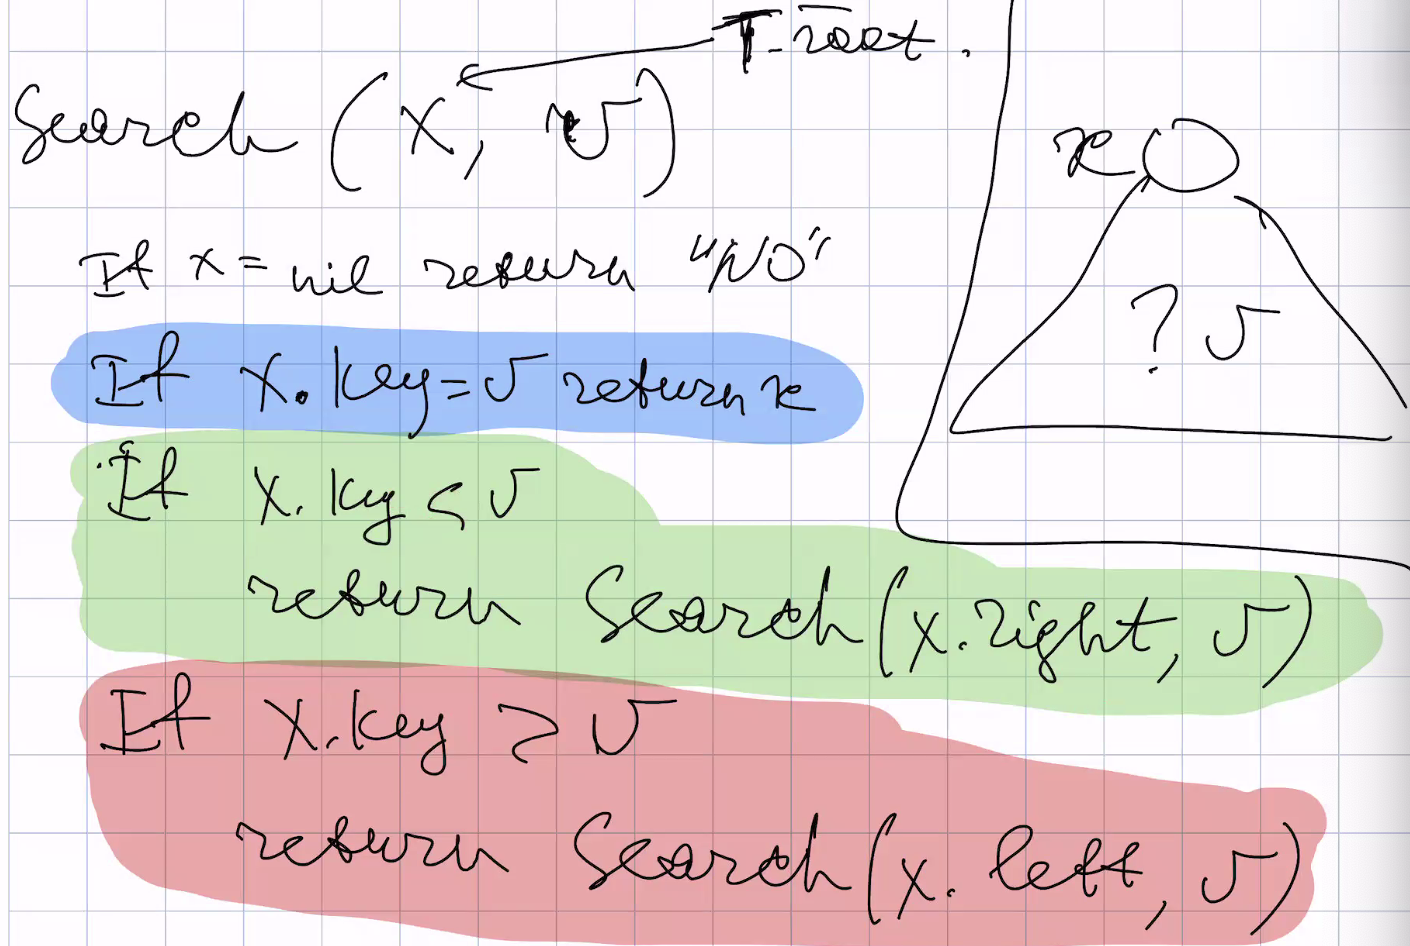 T.root.
Search (x, v)
If x = nil return "NO"
If x.key = v return x
If x.key < v
return Search (x.right, v)
If x.key > v
return Search (x.left, v)
x
? v